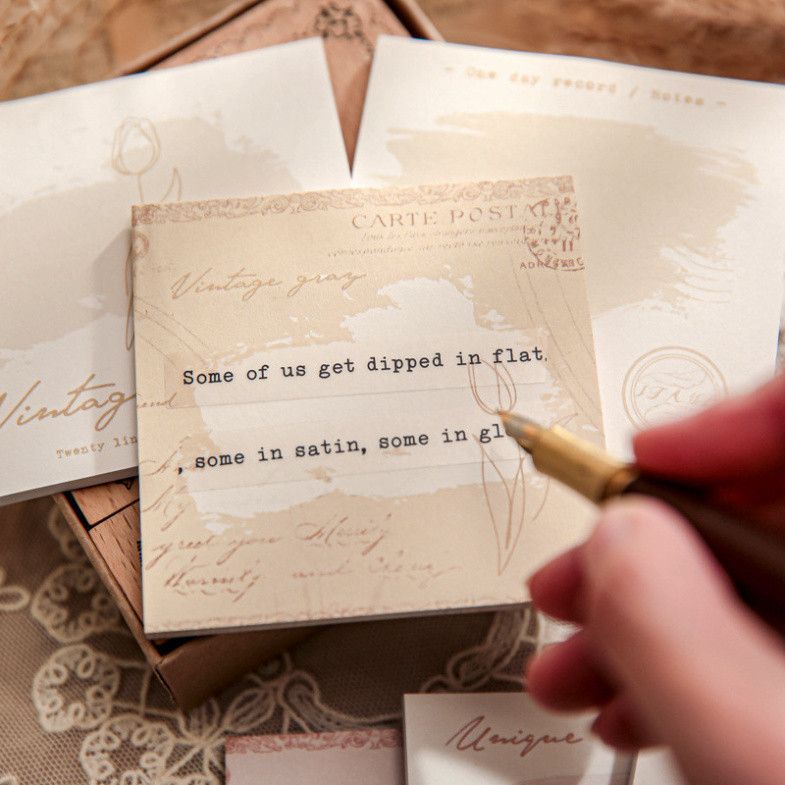 - One day record / Notes -
CARTE POSTAL
Vintage gray
Some of us get dipped in flat,
, some in satin, some in gl
Vintag
Twenty lin
and
My
greet you
Warmly and
Unique